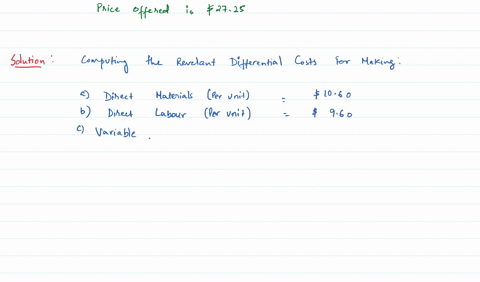 Price offered is $27.25
Solution: Computing the Revelant Differential Costs for Making:
a) Direct Materials (Per unit) = $10.60
b) Direct Labour (Per unit) = $ 9.60
c) Variable